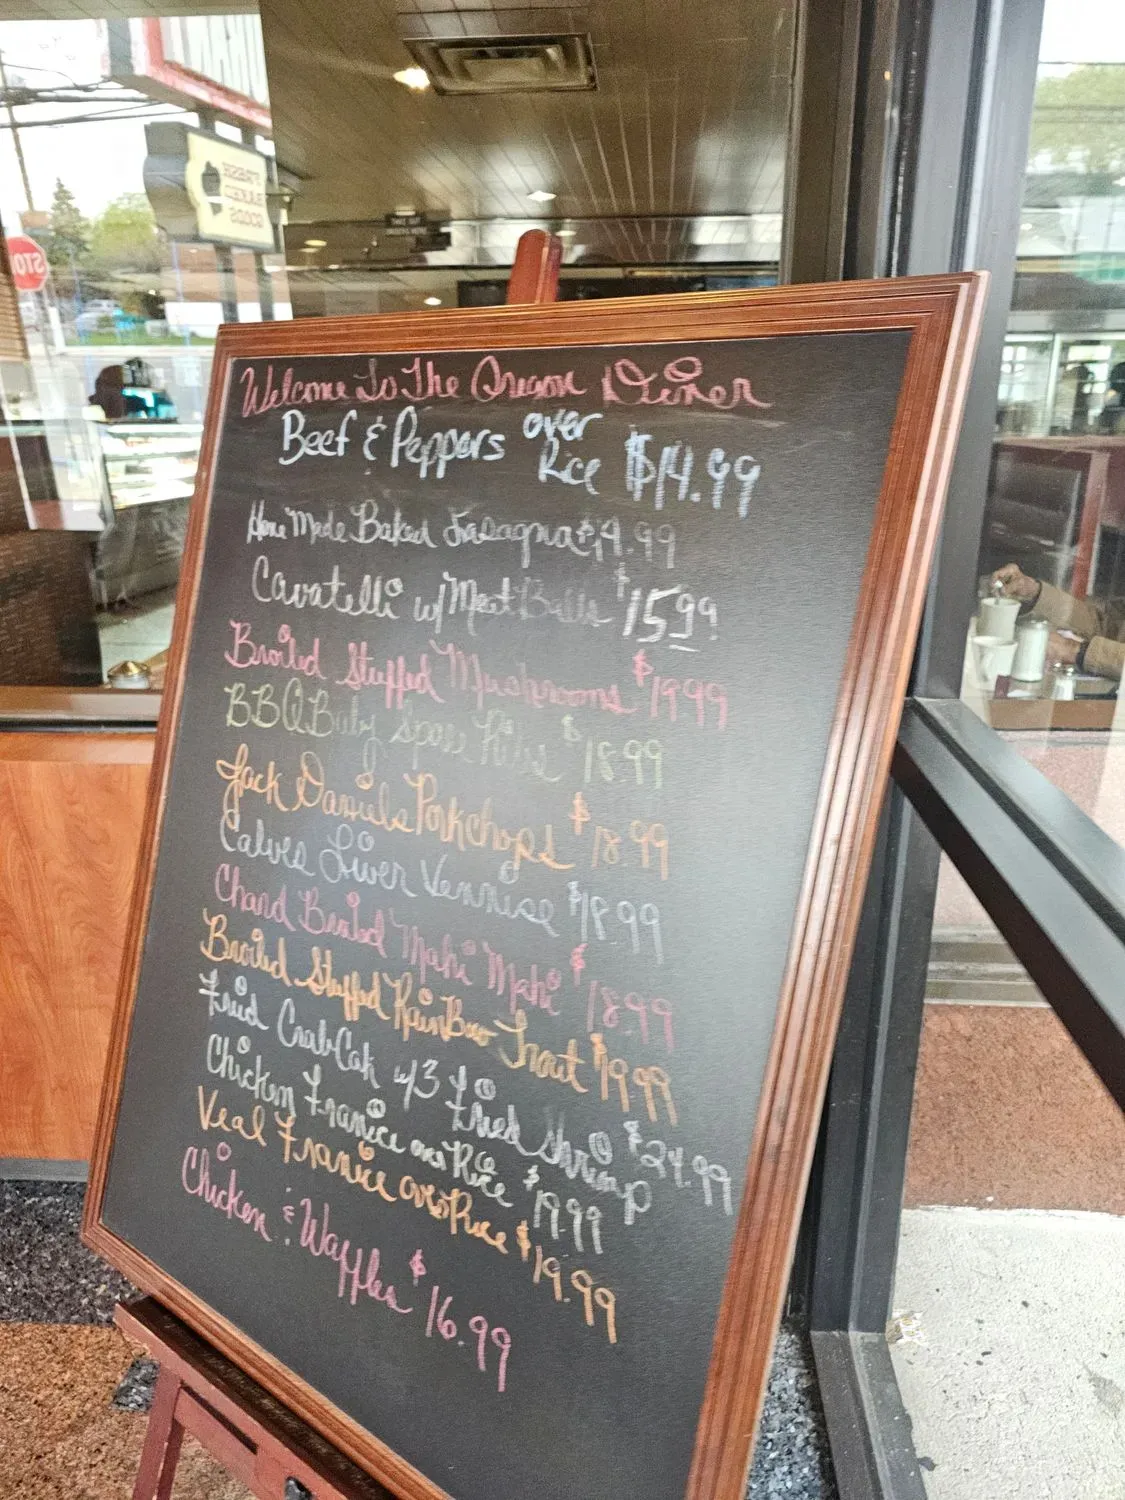 STO
FRESH
BAKED
GOODS
Welcome To The Oregon Diener
Beef & Peppers over Rice $14.99
Home Made Baked Lasagna $14.99
Cavatelli w/ Meat Balls $15.99
Broiled Stuffed Mushrooms $19.99
BBQ Baby Spare Ribs $18.99
Jack Daniels Porkchops $18.99
Calves Liver Vennise $18.99
Chard Broiled Mahi Mahi $18.99
Broiled Stuffed RainBow Trout $19.99
Fried CrabCak w/3 Fried Shrimp $24.99
Chicken Francie over Rice $19.99
Veal Francie over Rice $19.99
Chicken & Waffles $16.99